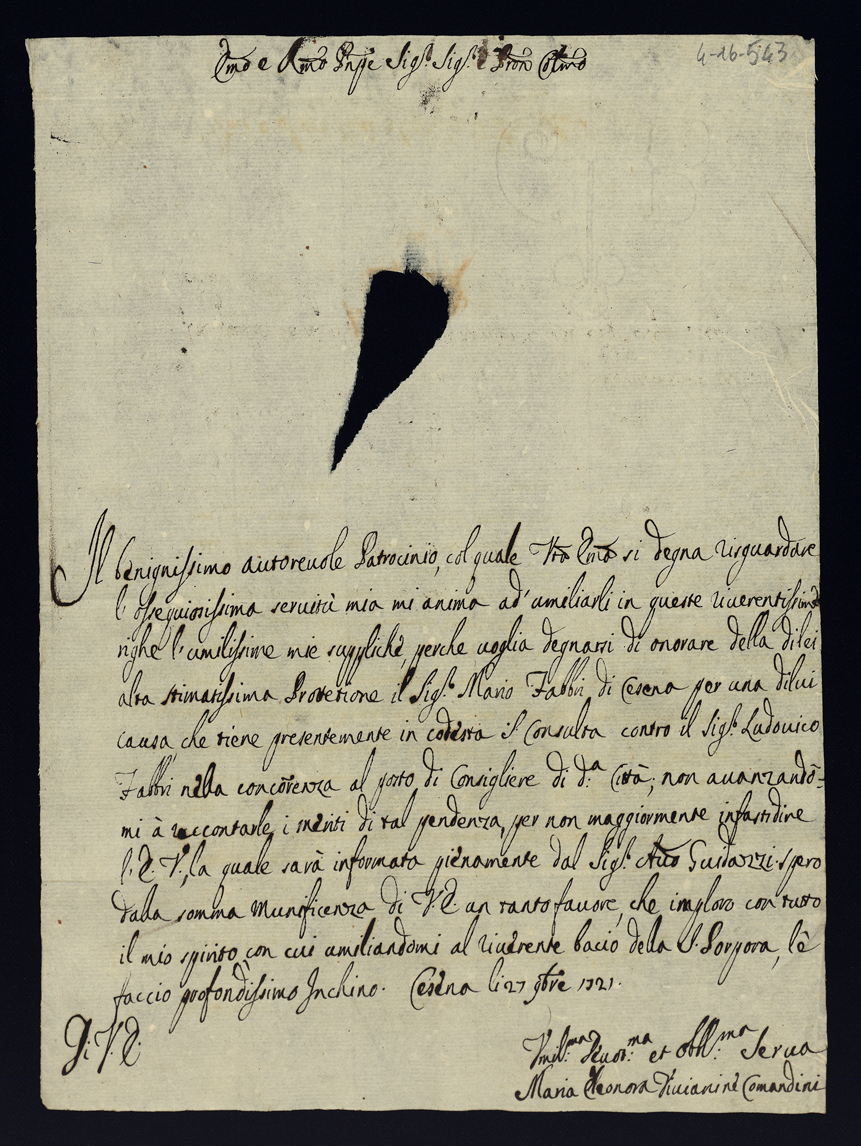 4-16-543
Emo e Rmo Pnpe Sig.r Sig.r e Pron Colmo
Il benignissimo autorevole Patrocinio, col quale Vra Emã si degna risguardare
l'ossequiosissima servitù mia mi anima ad'umiliarli in queste riverentissime
righe l'umilissime mie suppliche, perche voglia degnarsi di onorare della dilei
alta stimatissima Protezione il Sig.r Mario Fabbri di Cesena per una dilui
causa che tiene presentemente in codesta S. Consulta contro il Sig.r Ludovico
Fabbri nella concorenza al posto di Consigliere di d.a Città; non avanzando=
mi à raccontarle i meriti di tal pendenza, per non maggiormente infastidire
l'E. V., la quale sarà informata pienamente dal Sig.r Guidazzi. spero
dalla somma Munificenza di V. E. un tanto favore, che imploro con tutto
il mio spirito, con cui umiliandomi al riverente bacio della S. Porpora, lè
faccio profondissimo Inchino. Cesena li 27 9bre 1721.
Di V. E.
Vmil.ma Devot.ma et Obbl.ma Serva
Maria Eleonora Comandini